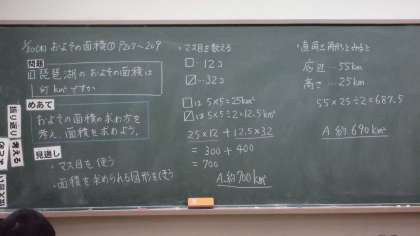 およその面積① P267〜269
問題
琵琶湖のおよその面積は
何km²ですか
めあて
およその面積の求め方を
考え、面積を求めよう。
見通し
・マス目を使う
・面積を求められる図形を使う
振り返り
考える
・マス目を数える
□…12コ
…32コ
□は5×5=25km²
は5×5÷2=12.5km²
25×12+12.5×32
=300+400
=700
A.約700km²
・直角三角形とみると
底辺…55km
高さ…25km
55×25÷2=687.5
A.約690km²